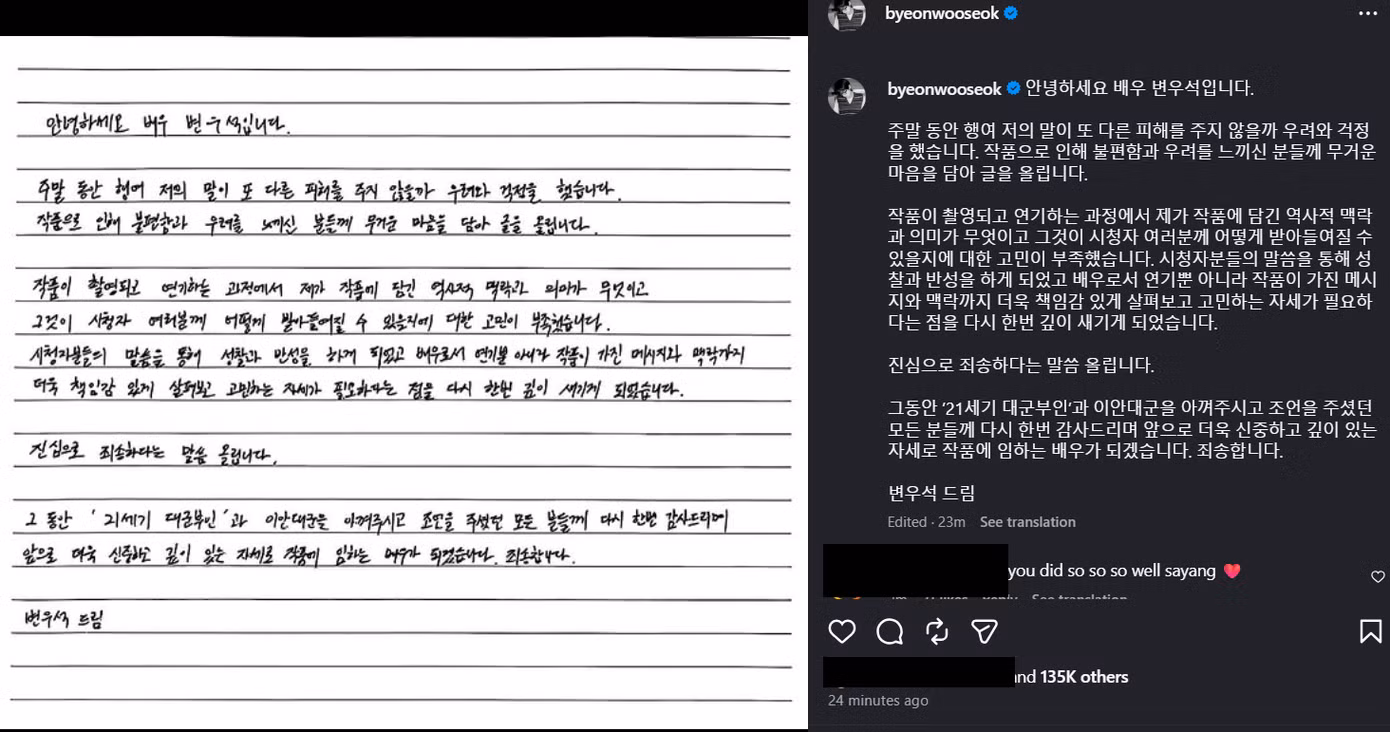 안녕하세요 배우 변우석입니다.
주말 동안 행여 저의 말이 또 다른 피해를 주지 않을까 우려와 걱정을 했습니다.
작품으로 인해 불편함과 우려를 느끼신 분들께 무거운 마음을 담아 글을 올립니다.
작품이 촬영되고 연기하는 과정에서 제가 작품에 담긴 역사적 맥락과 의미가 무엇이고
그것이 시청자 여러분께 어떻게 받아들여질 수 있을지에 대한 고민이 부족했습니다.
시청자분들의 말씀을 통해 성찰과 반성을 하게 되었고 배우로서 연기뿐 아니라 작품이 가진 메시지와 맥락까지
더욱 책임감 있게 살펴보고 고민하는 자세가 필요하다는 점을 다시 한번 깊이 새기게 되었습니다.
진심으로 죄송하다는 말씀 올립니다.
그 동안 '21세기 대군부인'과 이안대군을 아껴주시고 조언을 주셨던 모든 분들께 다시 한번 감사드리며
앞으로 더욱 신중하고 깊이 있는 자세로 작품에 임하는 배우가 되겠습니다. 죄송합니다.
변우석 드림
byeonwooseok
byeonwooseok 안녕하세요 배우 변우석입니다.
주말 동안 행여 저의 말이 또 다른 피해를 주지 않을까 우려와 걱정
을 했습니다. 작품으로 인해 불편함과 우려를 느끼신 분들께 무거운
마음을 담아 글을 올립니다.
작품이 촬영되고 연기하는 과정에서 제가 작품에 담긴 역사적 맥락
과 의미가 무엇이고 그것이 시청자 여러분께 어떻게 받아들여질 수
있을지에 대한 고민이 부족했습니다. 시청자분들의 말씀을 통해 성
찰과 반성을 하게 되었고 배우로서 연기뿐 아니라 작품이 가진 메시
지와 맥락까지 더욱 책임감 있게 살펴보고 고민하는 자세가 필요하
다는 점을 다시 한번 깊이 새기게 되었습니다.
진심으로 죄송하다는 말씀 올립니다.
그동안 '21세기 대군부인'과 이안대군을 아껴주시고 조언을 주셨던
모든 분들께 다시 한번 감사드리며 앞으로 더욱 신중하고 깊이 있는
자세로 작품에 임하는 배우가 되겠습니다. 죄송합니다.
변우석 드림
Edited · 23m See translation
you did so so so well sayang ❤️
Reply See translation
and 135K others
24 minutes ago